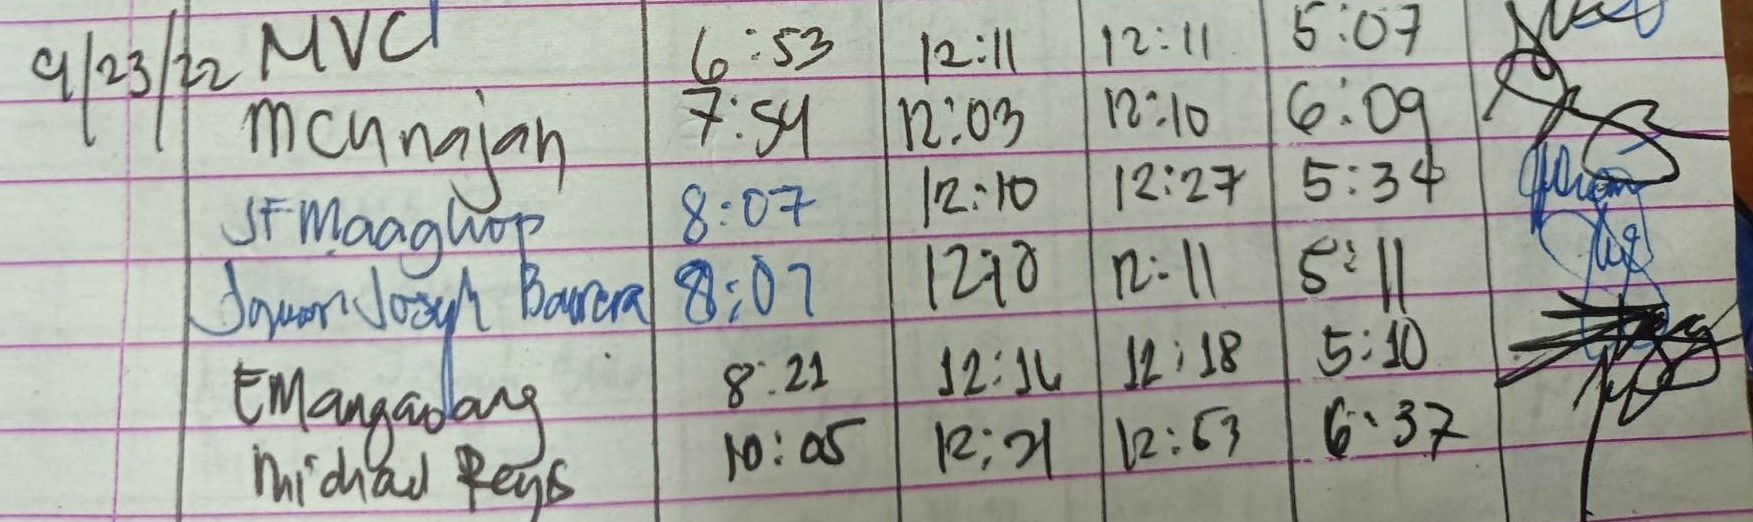 9/23/22 MVC 6:53 12:11 12:11 5:07
7:54 12:03 12:10 6:09
JF Maaghop 8:07 12:10 12:27 5:34
Joseph Barrera 8:07 12:10 12:11 5:11
EMangadang 8:21 12:16 12:18 5:10
Michael Reyes 10:05 12:21 12:53 6:37